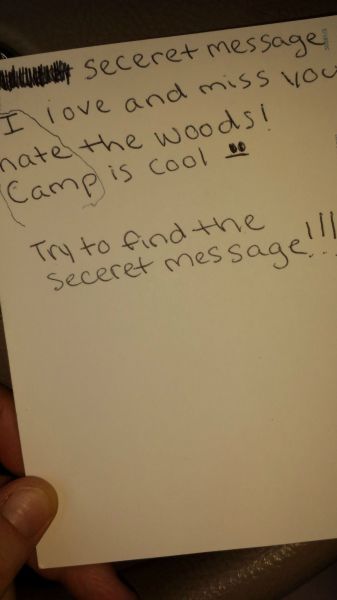 seceret message
I love and miss you
hate the woods!
Camp is cool
Try to find the
seceret message!!!